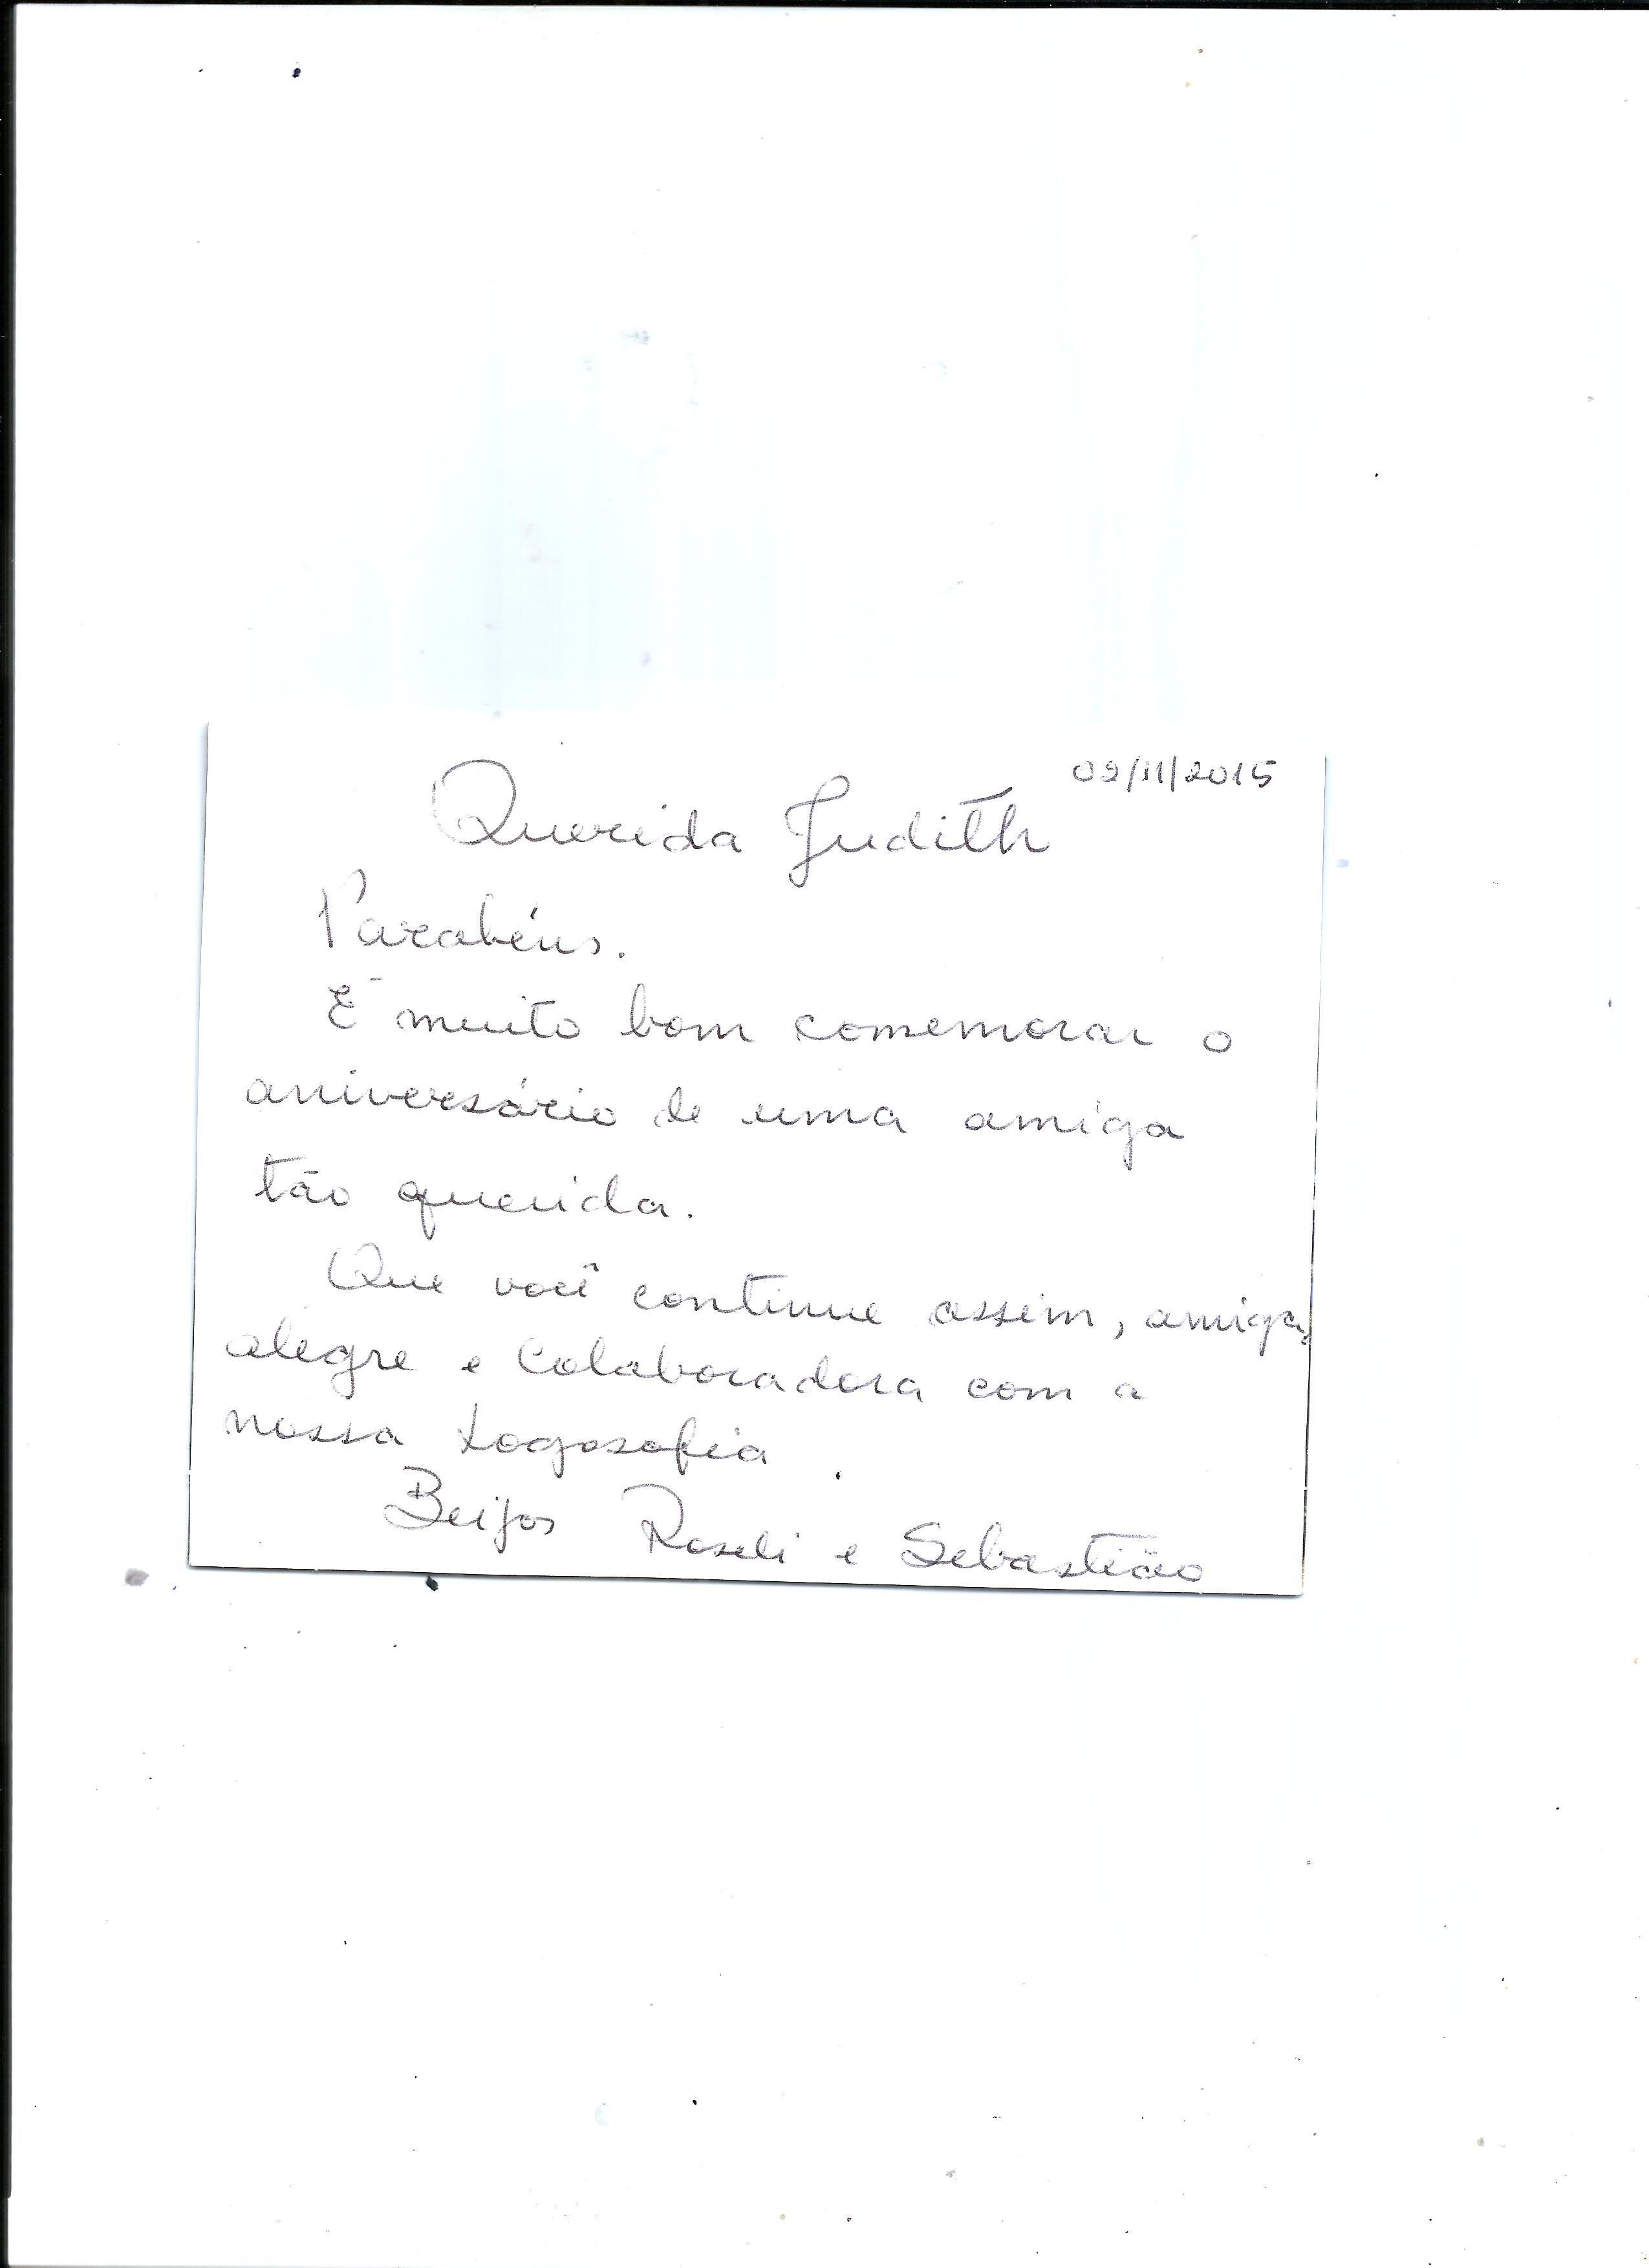 02/11/2015
Querida Judith
Parabéns.
É muito bom comemorar o
aniversário de uma amiga
tão querida.
Que você continue assim, amiga,
alegre e Colaboradora com a
nossa Logosofia.
Beijos Roseli e Sebastião